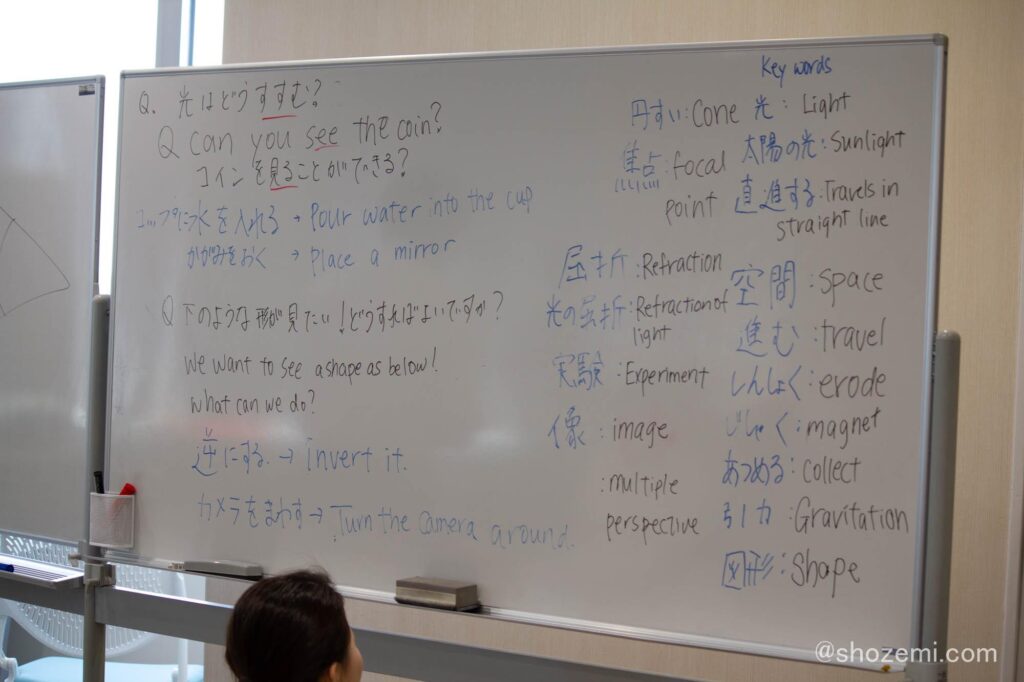 Q. 光はどうすすむ?
Q can you see the coin?
コインを見ることができる?
コップに水を入れる → Pour water into the cup
かがみをおく → place a mirror
Q 下のような形が見たい!どうすればよいですか?
We want to see a shape as below!
what can we do?
逆にする → invert it.
カメラをまわす → Turn the camera around.
Key words
円すい: Cone
焦点: focal
point
屈折: Refraction
光の屈折: Refraction of
light
実験: Experiment
像: image
: multiple
perspective
光: Light
太陽の光: Sunlight
直進する: Travels in
straight line
空間: space
進む: travel
しんしょく: erode
: magnet
あつめる: collect
引力: Gravitation
図形: Shape
@shozemi.com